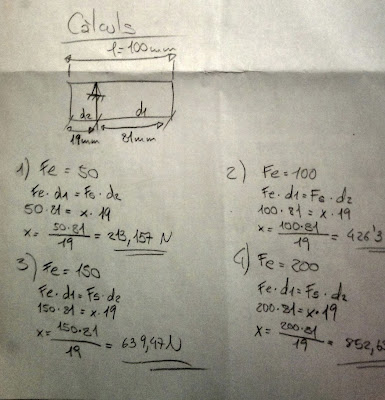 Càlculs
l = 100mm
d2 d1
19mm 81mm
1) Fe = 50
Fe · d1 = Fs · d2
50 · 81 = x · 19
x = 50 · 81 / 19 = 213,157 N
2) Fe = 100
Fe · d1 = Fs · d2
100 · 81 = x · 19
x = 100 · 81 / 19 = 426'3
3) Fe = 150
Fe · d1 = Fs · d2
150 · 81 = x · 19
x = 150 · 81 / 19 = 639,47 N
4) Fe = 200
Fe · d1 = Fs · d2
200 · 81 = x · 19
x = 200 · 81 / 19 = 852,63